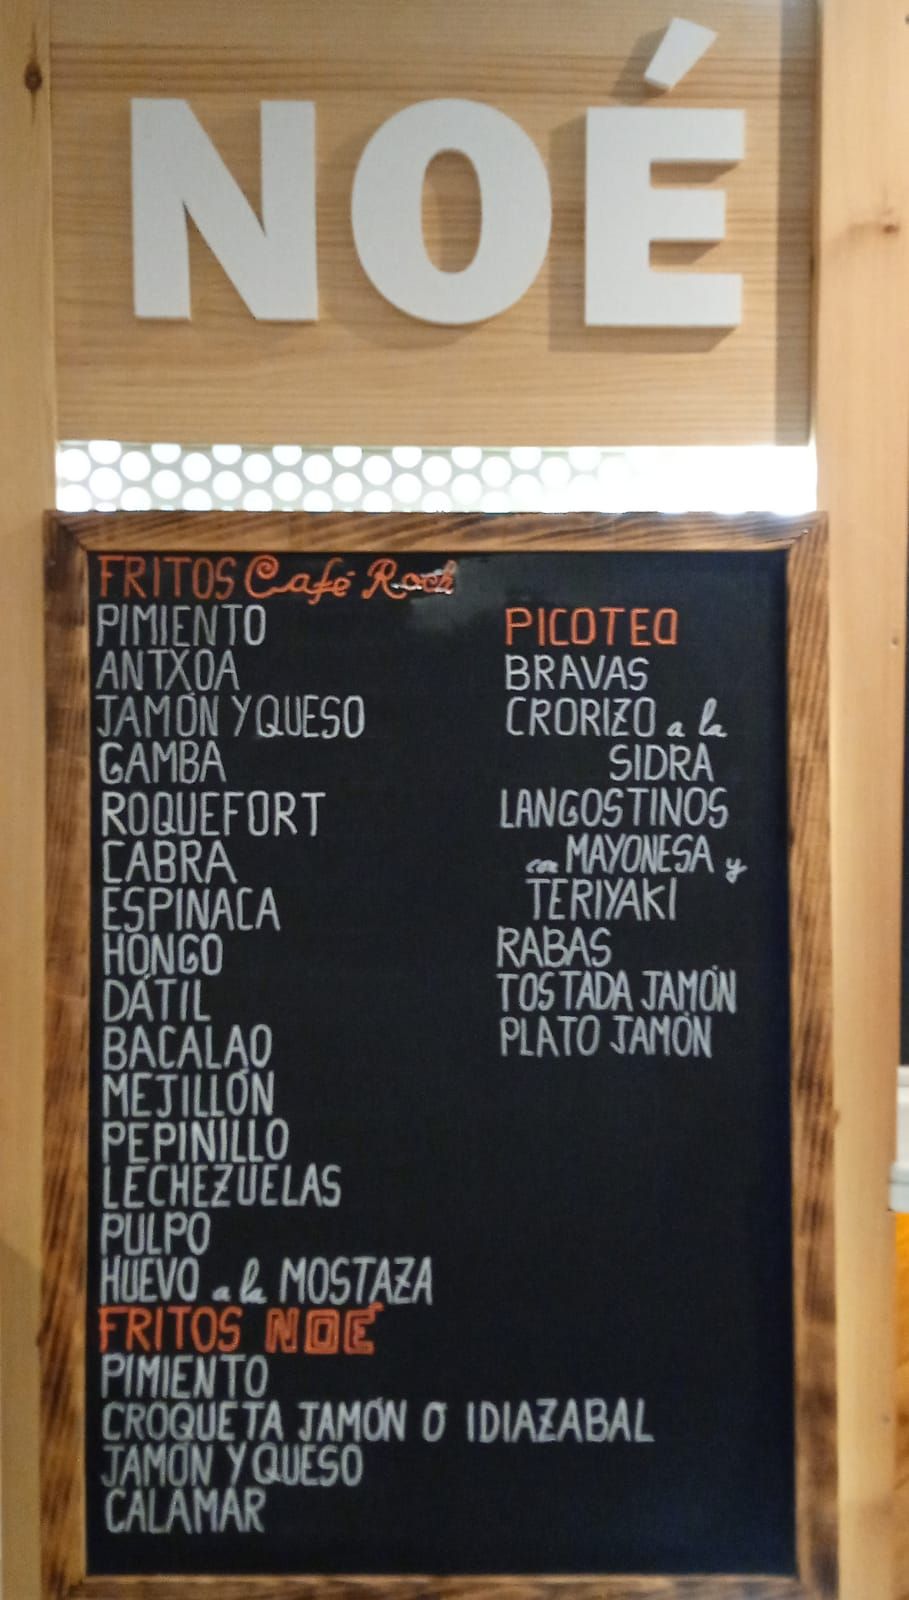 NOÉ
FRITOS Café Rock
PIMIENTO
ANTXOA
JAMÓN Y QUESO
GAMBA
ROQUEFORT
CABRA
ESPINACA
HONGO
DÁTIL
BACALAO
MEJILLÓN
PEPINILLO
LECHEZUELAS
PULPO
HUEVO a la MOSTAZA
FRITOS NOÉ
PIMIENTO
CROQUETA JAMÓN O IDIAZABAL
JAMÓN Y QUESO
CALAMAR
PICOTEO
BRAVAS
CRORIZO a la
SIDRA
LANGOSTINOS
con MAYONESA y
TERIYAKI
RABAS
TOSTADA JAMÓN
PLATO JAMÓN